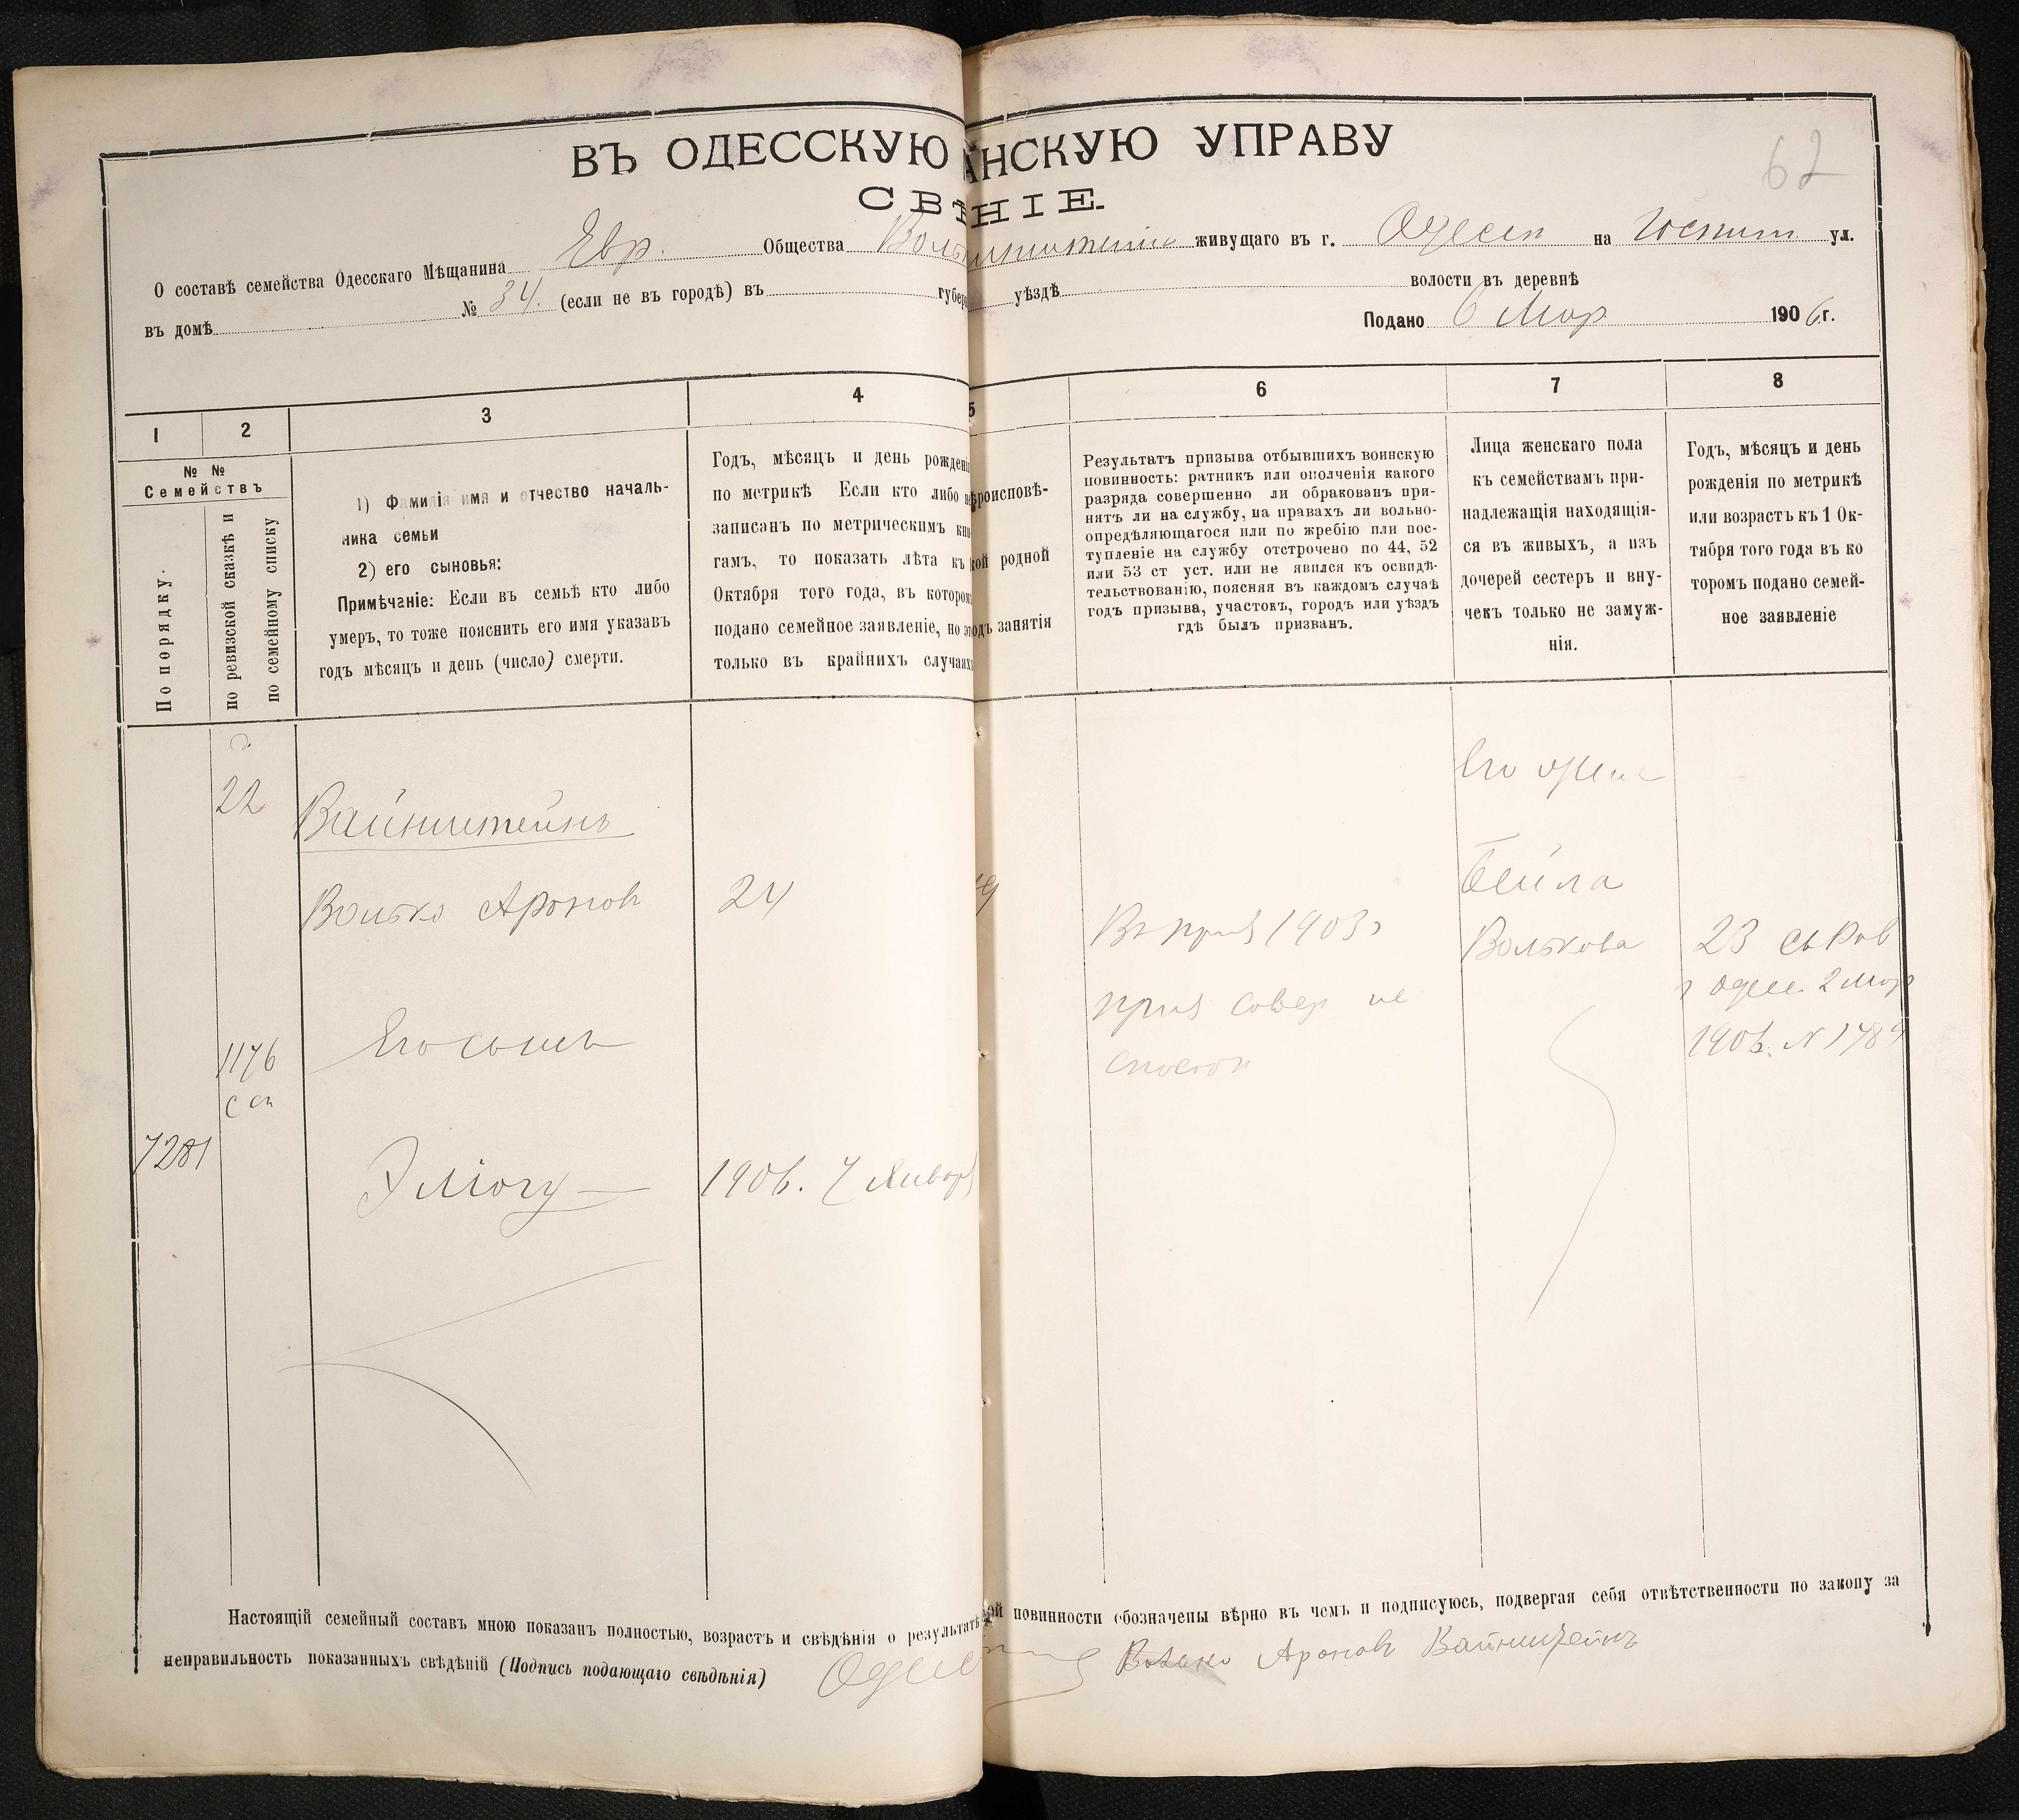 ВЪ ОДЕССКУЮ АНСКУЮ УПРАВУ
СВѢНІЕ.
62
О составѣ семейства Одесскаго Мѣщанина Евр. Общества живущаго въ г. Одессѣ на Госпит ул.
въ домѣ № 34. (если не въ городѣ) въ губер уѣздѣ волости въ деревнѣ
Подано 6 Мар 1906 г.
1 2 3 4 5 6 7 8
№ №
Семействъ
По порядку.
по ревизской сказкѣ и
по семейному списку
1) Фамилія имя и отчество началь-
ника семьи
2) его сыновья:
Примѣчаніе: Если въ семьѣ кто либо
умеръ, то тоже пояснить его имя указавъ
годъ мѣсяцъ и день (число) смерти.
Годъ, мѣсяцъ и день рожденія
по метрикѣ Если кто либо не
записанъ по метрическимъ кни
гамъ, то показать лѣта къ
Октября того года, въ котором
подано семейное заявленіе, но эт
только въ крайнихъ случаях
ѣроисповѣ-
кой родной
одъ занятія
Результатъ призыва отбывшихъ воинскую
повинность: ратникъ или ополченія какого
разряда совершенно ли обракованъ при-
нятъ ли на службу, на правахъ ли вольно-
опредѣляющагося или по жребію или пос-
тупленіе на службу отстрочено по 44, 52
или 53 ст уст. или не явился къ освидѣ-
тельствованію, поясняя въ каждомъ случаѣ
годъ призыва, участокъ, городъ или уѣздъ
гдѣ былъ призванъ.
Лица женскаго пола
къ семействамъ при-
надлежащія находящія-
ся въ живыхъ, а изъ
дочерей сестеръ и вну-
чекъ только не замуж-
нія.
Годъ, мѣсяцъ и день
рожденія по метрикѣ
или возрастъ къ 1 Ок-
тября того года въ ко
торомъ подано семей-
ное заявленіе
22
Вайнштейнъ
Волько Аронов 24
1176
Его сынъ
7281
1906. 7 Январ
В приз 1903 г
приз совер не
способ
Его жена
Бейла
Волькова
23 съ Рав
г Одес. 2 Мар
1906. N 1789
Настоящій семейный составъ мною показанъ полностью, возрастъ и свѣдѣнія о результатѣ кой повинности обозначены вѣрно въ чемъ и подписуюсь, подвергая себя отвѣтственности по закону за
неправильность показанныхъ свѣдѣній (Подпись подающаго свѣдѣнія) Волько Аронов Вайнштейнъ